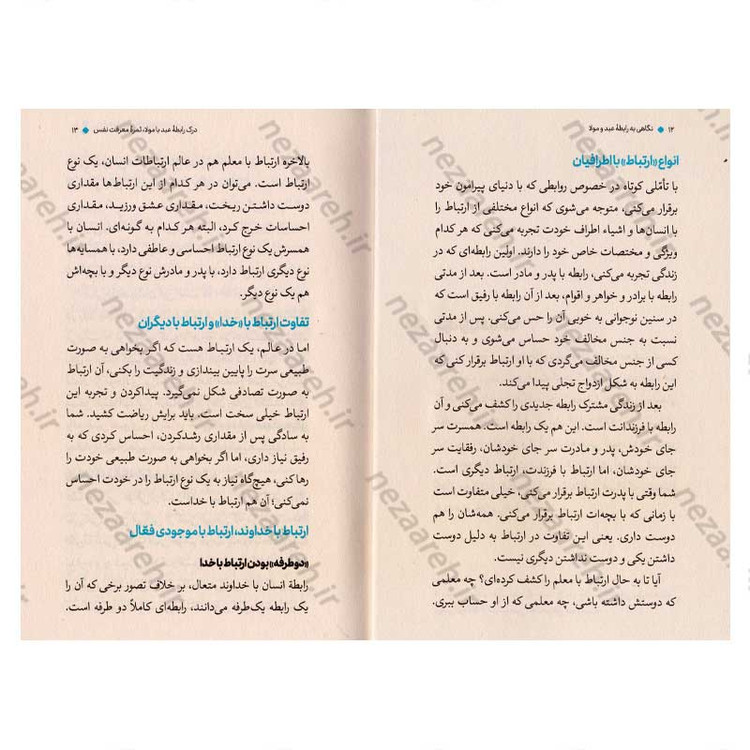 ۱۲ ◆ نگاهی به رابطهٔ عبد و مولا
انواع «ارتباط» با اطرافیان
با تأمّلی کوتاه در خصوص روابطی که با دنیای پیرامون خود
برقرار می‌کنی، متوجه می‌شوی که انواع مختلفی از ارتباط را
با انسان‌ها و اشیاء اطراف خودت تجربه می‌کنی که هر کدام
ویژگی و مختصات خاص خود را دارند. اولین رابطه‌ای که در
زندگی تجربه می‌کنی، رابطه با پدر و مادر است. بعد از مدتی
رابطه با برادر و خواهر و اقوام، بعد از آن رابطه با رفیق است که
در سنین نوجوانی به خوبی آن را حس می‌کنی. پس از مدتی
نسبت به جنس مخالف خود حساس می‌شوی و به دنبال
کسی از جنس مخالف می‌گردی که با او ارتباط برقرار کنی که
این رابطه به شکل ازدواج تجلی پیدا می‌کند.
بعد از زندگی مشترک رابطه جدیدی را کشف می‌کنی و آن
رابطه با فرزندانت است. این هم یک رابطه است. همسرت سر
جای خودش، پدر و مادرت سر جای خودشان، رفقایت سر
جای خودشان، اما ارتباط با فرزندت، ارتباط دیگری است.
شما وقتی با پدرت ارتباط برقرار می‌کنی، خیلی متفاوت است
با زمانی که با بچه‌ات ارتباط برقرار می‌کنی. همه‌شان را هم
دوست داری. یعنی این تفاوت در ارتباط به دلیل دوست
داشتن یکی و دوست نداشتن دیگری نیست.
آیا تا به حال ارتباط با معلم را کشف کرده‌ای؟ چه معلمی
که دوستش داشته باشی، چه معلمی که از او حساب ببری.
درک رابطهٔ عبد با مولا، ثمرهٔ معرفت نفس ◆ ۱۳
بالاخره ارتباط با معلم هم در عالم ارتباطات انسان، یک نوع
ارتباط است. می‌توان در هر کدام از این ارتباط‌ها مقداری
دوست داشتن ریخت، مقداری عشق ورزید، مقداری
احساسات خرج کرد، البته هر کدام به گونه‌ای. انسان با
همسرش یک نوع ارتباط احساسی و عاطفی دارد، با همسایه‌ها
نوع دیگری ارتباط دارد، با پدر و مادرش نوع دیگر و با بچه‌اش
هم یک نوع دیگر.
تفاوت ارتباط با «خدا» و ارتباط با دیگران
اما در عالم، یک ارتباط هست که اگر بخواهی به صورت
طبیعی سرت را پایین بیندازی و زندگیت را بکنی، آن ارتباط
به صورت تصادفی شکل نمی‌گیرد. پیداکردن و تجربه این
ارتباط خیلی سخت است. باید برایش ریاضت کشید. شما
به سادگی پس از مقداری رشدکردن، احساس کردی که به
رفیق نیاز داری، اما اگر بخواهی به صورت طبیعی خودت را
رها کنی، هیچ‌گاه نیاز به یک نوع ارتباط را در خودت احساس
نمی‌کنی؛ آن هم ارتباط با خداست.
ارتباط با خداوند، ارتباط با موجودی فعّال
«دوطرفه» بودن ارتباط با خدا
رابطهٔ انسان با خداوند متعال، بر خلاف تصور برخی که آن را
یک رابطه یک‌طرفه می‌دانند، رابطه‌ای کاملاً دو طرفه است.
nezaareh.ir